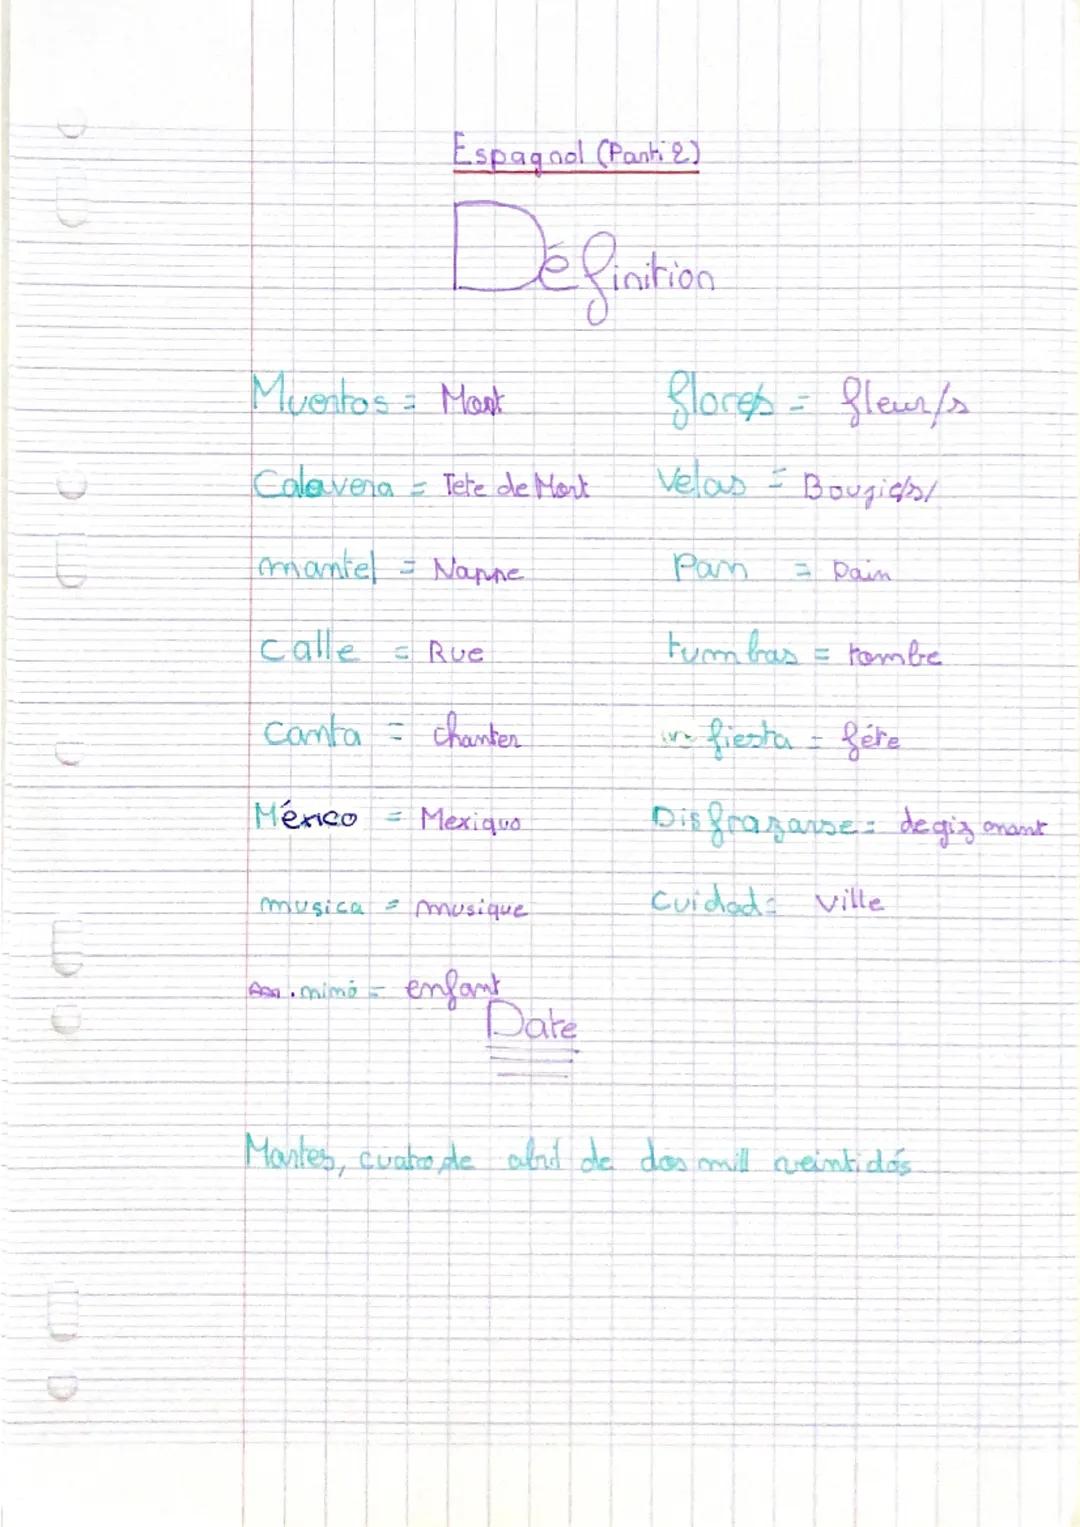 Espagnol (Parti 2)
Définition
Muertos = Mort flores = fleur/s
Calavera = Tete de Mort Velas = Bougie/s/
mantel = Nappe Pan = Pain
Calle = Rue tumbas = tombe
Canta = chanter fiesta = fête
México = Mexique Disfrazarse = degiz
musica = musique Cuidad = ville
= enfant
Date
Martes, cuatro de abril de dos mill veintidós